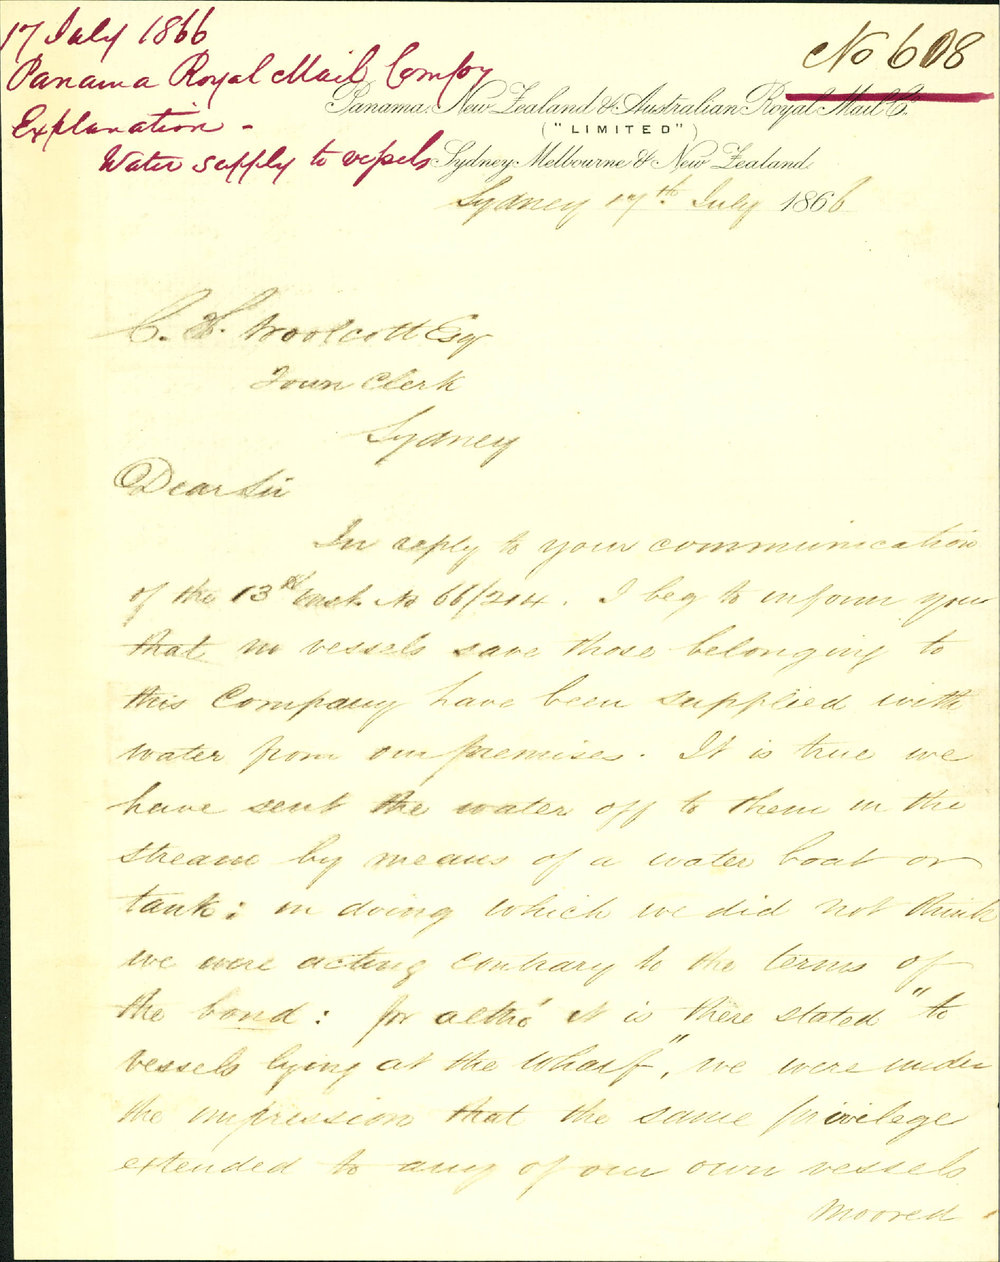 17 July 1866
Panama Royal Mail Compy
Explanation -
Water supply to vessels
No 608
Panama, New Zealand & Australian Royal Mail Co.
("LIMITED")
Sydney Melbourne & New Zealand
Sydney 17th July 1866
C. H. Woolcott Esq
Town Clerk
Sydney
Dear Sir
In reply to your communication
of the 13th inst. No 66/214. I beg to inform you
that no vessels save those belonging to
this Company have been supplied with
water from our premises. It is true we
have sent the water off to them in the
stream by means of a water boat or
tank: in doing which we did not think
we were acting contrary to the terms of
the bond: for altho' it is there stated "to
vessels lying at the Wharf", we were under
the impression that the same privilege
extended to any of our own vessels
moored